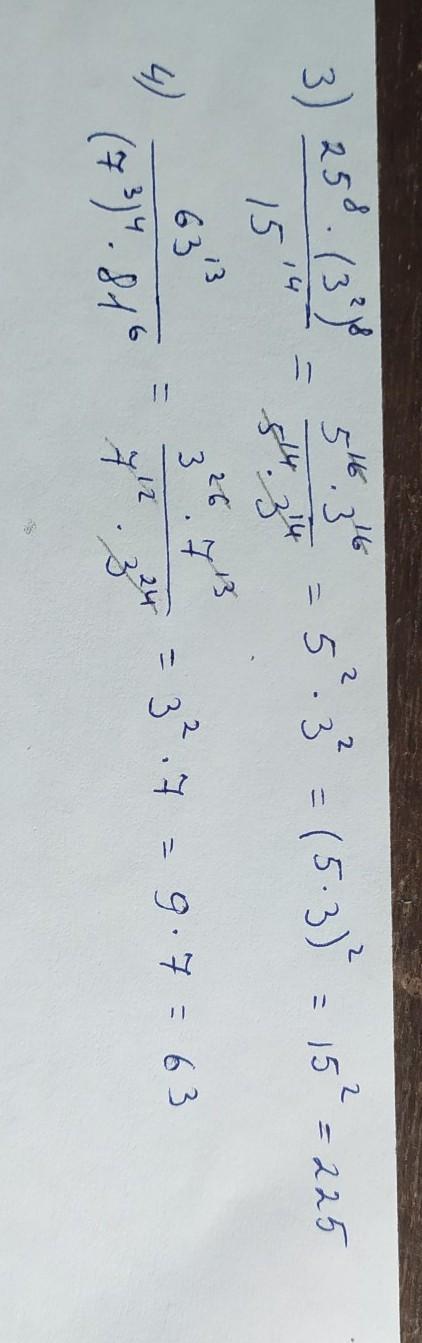 3) (25⁸ · (3²)⁸) / 15¹⁴ = (5¹⁶ · 3¹⁶) / (5¹⁴ · 3¹⁴) = 5² · 3² = (5·3)² = 15² = 225
4) 63¹³ / ((7³)⁴ · 81⁶) = (3²⁶ · 7¹³) / (7¹² · 3²⁴) = 3² · 7 = 9 · 7 = 63